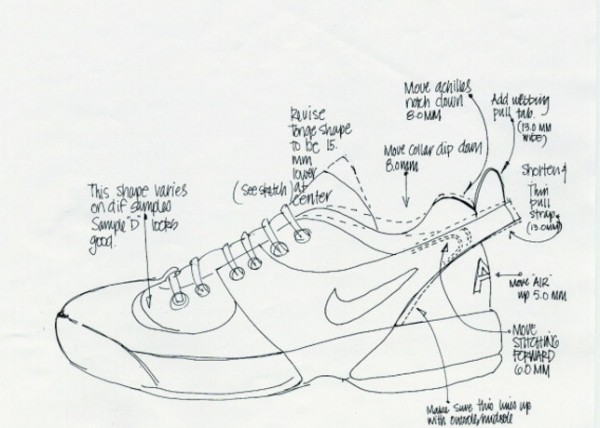 Move achilles
notch down
8.0MM
Add webbing
pull tab.
(13.0 MM
wide)
Revise
Tonge shape
to be 15.
mm
lower
at
center
(See sketch)
Move collar dip down
8.0mm
Shorten &
Thin
pull
strap.
(13.0MM)
This shape varies
on dif samples
Sample "D" looks
good.
A
Move "AIR"
up 5.0 MM
MOVE
STITCHING
FORWARD
6.0 MM
Make sure this lines up
with outsole/midsole